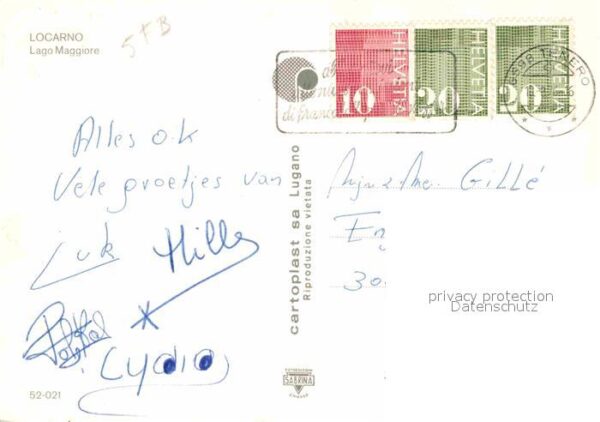 LOCARNO
Lago Maggiore
5+B
HELVETIA
10
HELVETIA
20
HELVETIA
20
6598 TENERO
Alles o.k
Vele groetjes van
Luk Hilly
Lydia
cartoplast sa Lugano
Riproduzione vietata
GILLÉ
privacy protection
Datenschutz
SABRINA
52-021